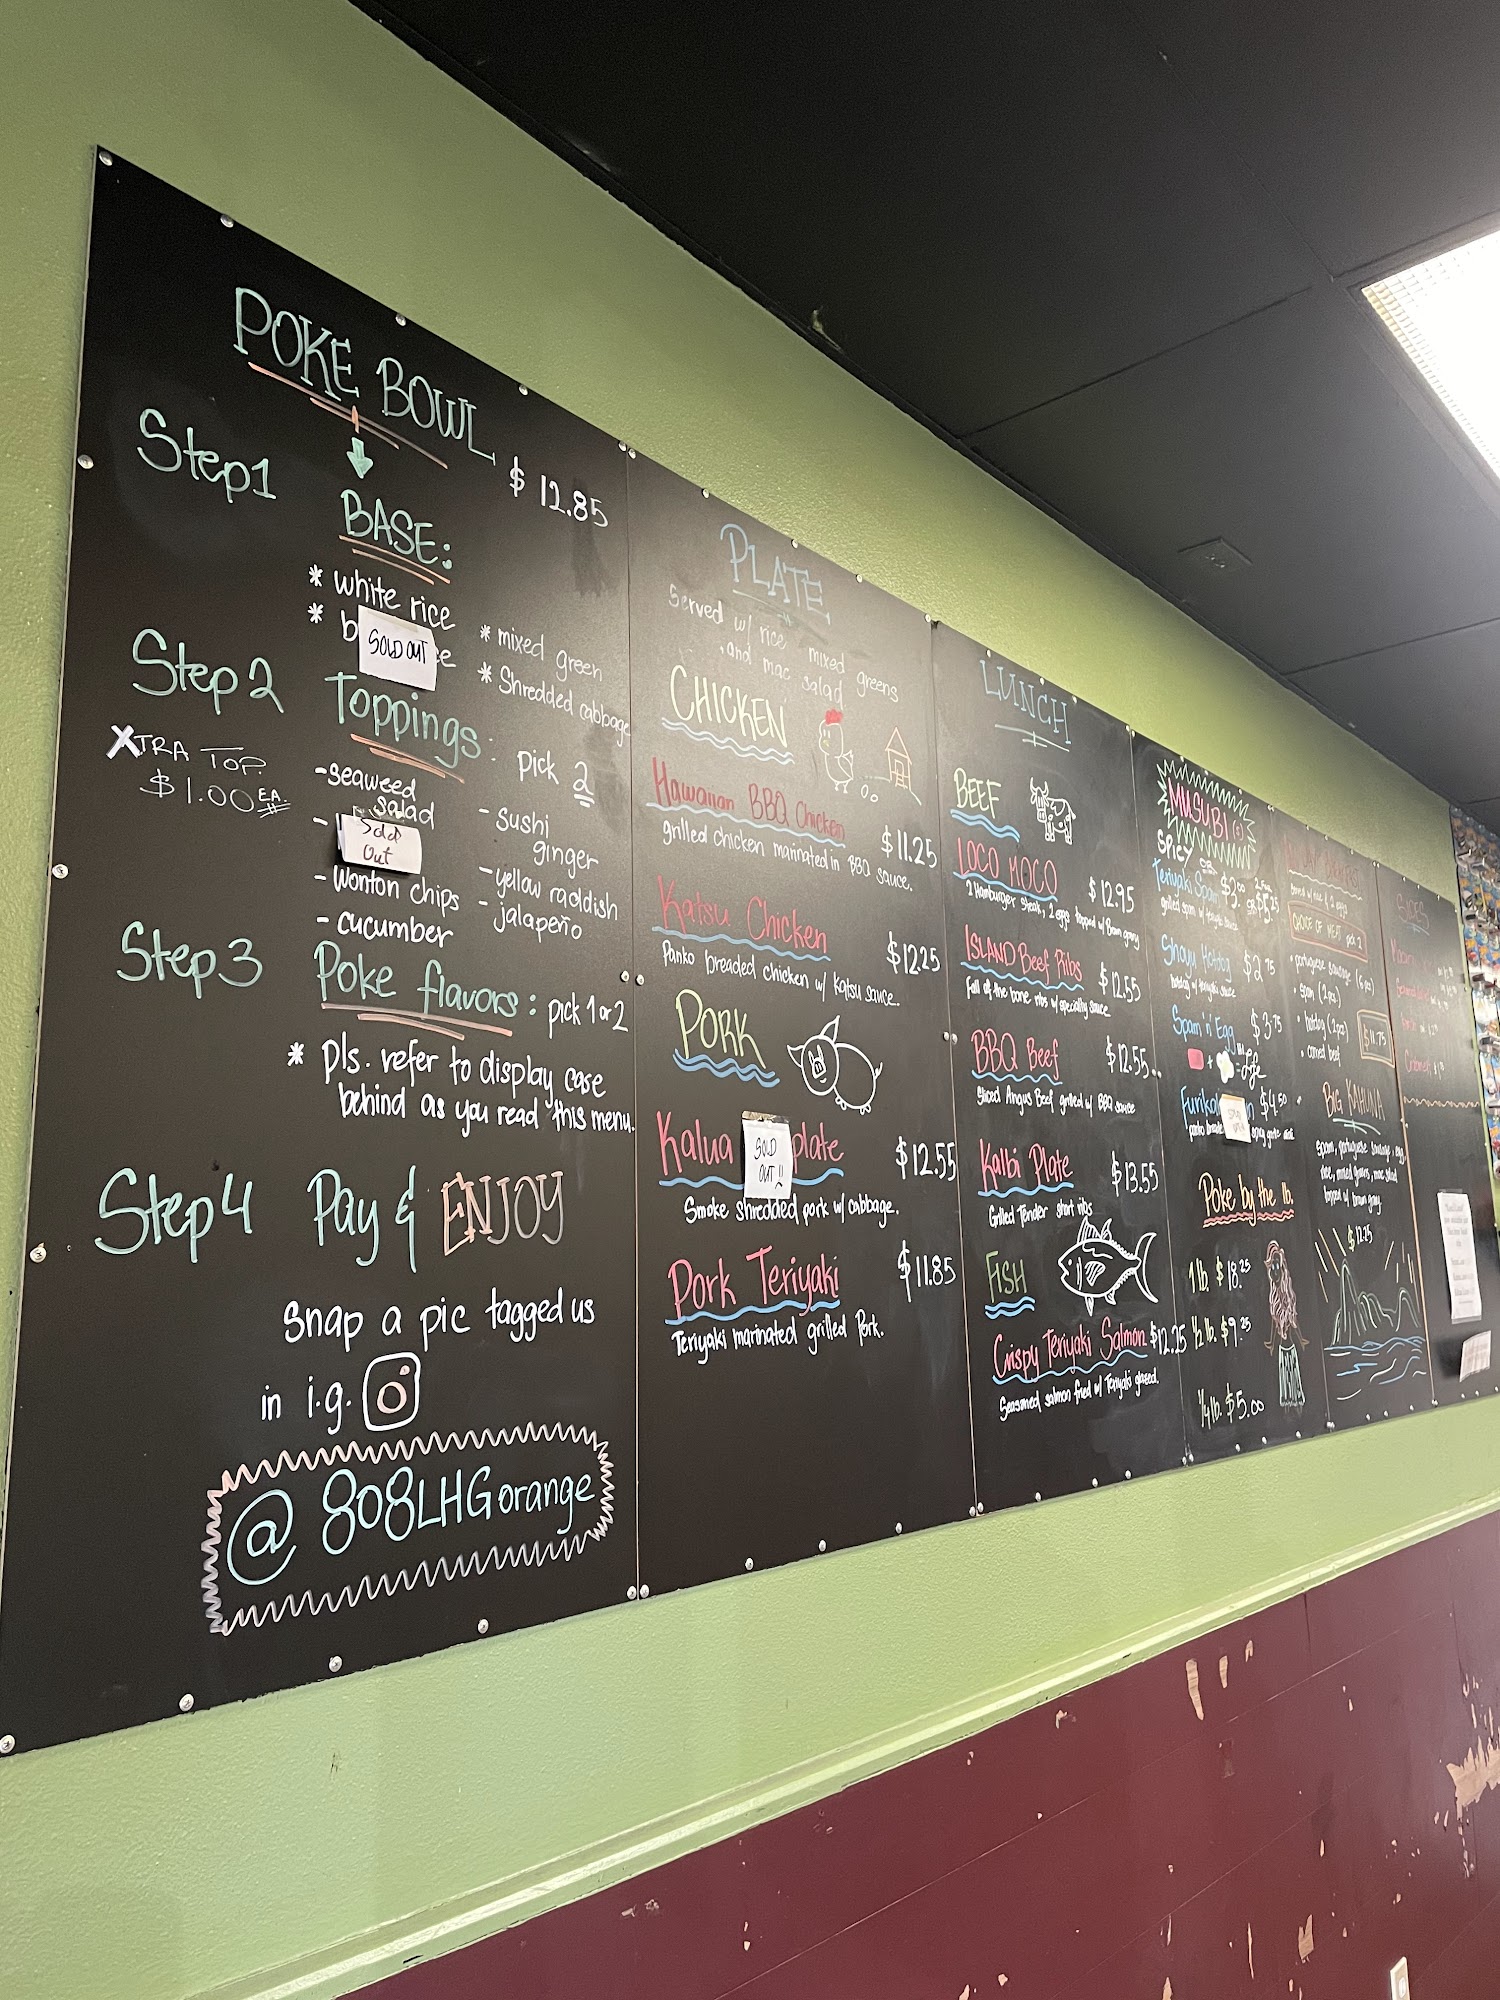 POKE BOWL
$ 12.85
Step1
BASE:
* white rice
* b
SOLD OUT
ce
* mixed green
* Shredded cabbage
Step 2
Toppings: pick 2
XTRA TOP.
$1.00 EA.
- seaweed
salad
-
Sold
Out
- Wonton chips
- cucumber
- sushi
ginger
- yellow raddish
- jalapeño
Step 3
Poke flavors: pick 1 or 2
* pls. refer to display case
behind as you read this menu.
Step 4 Pay & ENJOY
snap a pic tagged us
in i.g.
@ 808LHGorange
PLATE
Served w/ rice mixed greens
and mac salad
CHICKEN
Hawaiian BBQ Chicken $11.25
grilled chicken marinated in BBQ sauce.
Katsu Chicken $12.25
Panko breaded chicken w/ Katsu sauce.
PORK
Kalua plate $12.55
SOLD
OUT!!
Smoke shredded pork w/ cabbage.
Pork Teriyaki $11.85
Teriyaki marinated grilled Pork.
LUNCH
BEEF
LOCO MOCO $12.95
2 Hamburger steak, 2 eggs topped w/ Brown gravy
ISLAND Beef Ribs $12.55
Fall of the bone ribs w/ specialty sauce.
BBQ Beef $12.55
Sliced Angus Beef grilled w/ BBQ sauce
Kalbi Plate $13.55
Grilled Tender short ribs
FISH
Crispy Teriyaki Salmon $12.25
Seasoned salmon fried w/ Teriyaki glazed.
MUSUBI
SPICY OR
Teriyaki Spam $3.00
2 For
$5.25
grilled spam w/ teriyaki sauce
Shoyu Hotdog $2.75
hotdog w/ teriyaki sauce
Spam 'n' Egg $3.75
+ = Life
Furikake $4.50
Poke by the lb.
1 lb. $18.25
1/2 lb. $9.25
1/4 lb. $5.00
Served w/ rice & 2 eggs
CHOICE OF MEAT pick 2
• portuguese sausage (6 pcs)
• spam (2 pcs)
• hotdog (2 pcs)
• corned beef
$11.75
BIG KAHUNA
spam, portuguese sausage, egg,
rice, mixed greens, mac salad
topped w/ brown gravy
$12.25
SIDES